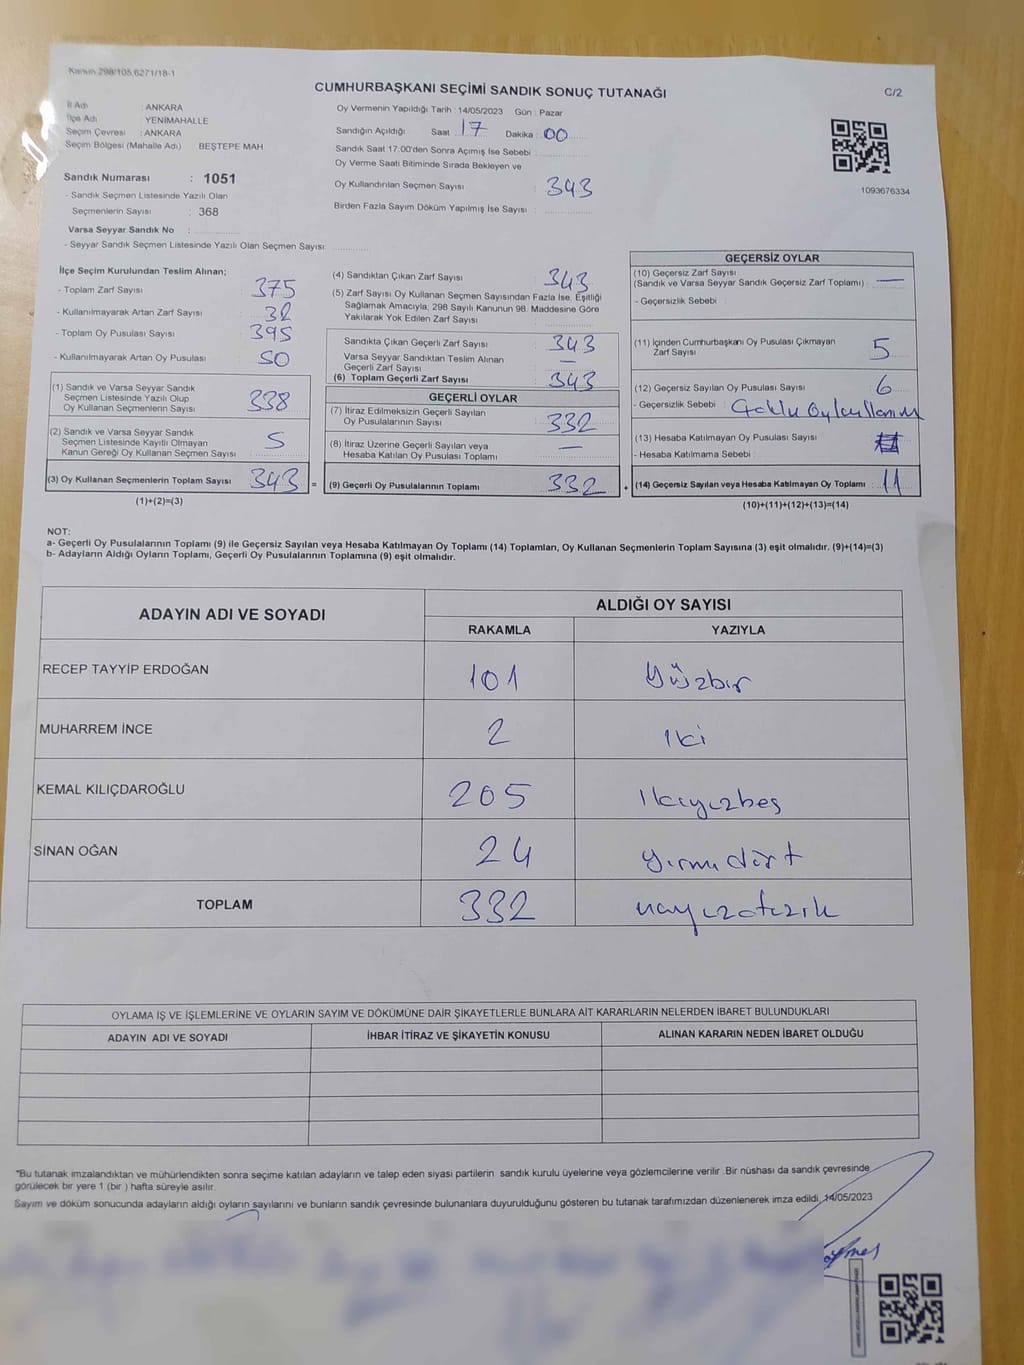 Kanun 298/105,6271/18-1
CUMHURBAŞKANI SEÇİMİ SANDIK SONUÇ TUTANAĞI
C/2
İl Adı : ANKARA
İlçe Adı : YENİMAHALLE
Seçim Çevresi : ANKARA
Seçim Bölgesi (Mahalle Adı) : BEŞTEPE MAH
Oy Vermenin Yapıldığı Tarih : 14/05/2023 Gün : Pazar
Sandığın Açıldığı Saat : 17 Dakika : 00
Sandık Saat 17:00'den Sonra Açımış İse Sebebi :
Oy Verme Saati Bitiminde Sırada Bekleyen ve
Oy Kullandırılan Seçmen Sayısı : 343
Birden Fazla Sayım Döküm Yapılmış İse Sayısı :
1093676334
Sandık Numarası : 1051
- Sandık Seçmen Listesinde Yazılı Olan
Seçmenlerin Sayısı : 368
Varsa Seyyar Sandık No :
- Seyyar Sandık Seçmen Listesinde Yazılı Olan Seçmen Sayısı:
İlçe Seçim Kurulundan Teslim Alınan;
- Toplam Zarf Sayısı : 375
- Kullanılmayarak Artan Zarf Sayısı : 32
- Toplam Oy Pusulası Sayısı : 395
- Kullanılmayarak Artan Oy Pusulası : 50
(1) Sandık ve Varsa Seyyar Sandık
Seçmen Listesinde Yazılı Olup
Oy Kullanan Seçmenlerin Sayısı : 338
(2) Sandık ve Varsa Seyyar Sandık
Seçmen Listesinde Kayıtlı Olmayan
Kanun Gereği Oy Kullanan Seçmen Sayısı : 5
(3) Oy Kullanan Seçmenlerin Toplam Sayısı : 343 =
(1)+(2)=(3)
(4) Sandıktan Çıkan Zarf Sayısı : 343
(5) Zarf Sayısı Oy Kullanan Seçmen Sayısından Fazla İse, Eşitliği
Sağlamak Amacıyla; 298 Sayılı Kanunun 98. Maddesine Göre
Yakılarak Yok Edilen Zarf Sayısı :
Sandıkta Çıkan Geçerli Zarf Sayısı : 343
Varsa Seyyar Sandıktan Teslim Alınan
Geçerli Zarf Sayısı : —
(6) Toplam Geçerli Zarf Sayısı : 343
GEÇERLİ OYLAR
(7) İtiraz Edilmeksizin Geçerli Sayılan
Oy Pusulalarının Sayısı : 332
(8) İtiraz Üzerine Geçerli Sayılan veya
Hesaba Katılan Oy Pusulası Toplamı : —
(9) Geçerli Oy Pusulalarının Toplamı : 332 +
GEÇERSİZ OYLAR
(10) Geçersiz Zarf Sayısı
(Sandık ve Varsa Seyyar Sandık Geçersiz Zarf Toplamı) : —
- Geçersizlik Sebebi :
(11) İçinden Cumhurbaşkanı Oy Pusulası Çıkmayan
Zarf Sayısı : 5
(12) Geçersiz Sayılan Oy Pusulası Sayısı : 6
- Geçersizlik Sebebi : Çoklu Oykullanım
(13) Hesaba Katılmayan Oy Pusulası Sayısı :
- Hesaba Katılmama Sebebi :
(14) Geçersiz Sayılan veya Hesaba Katılmayan Oy Toplamı : 11
(10)+(11)+(12)+(13)=(14)
NOT:
a- Geçerli Oy Pusulalarının Toplamı (9) ile Geçersiz Sayılan veya Hesaba Katılmayan Oy Toplamı (14) Toplamları, Oy Kullanan Seçmenlerin Toplam Sayısına (3) eşit olmalıdır. (9)+(14)=(3)
b- Adayların Aldığı Oyların Toplamı, Geçerli Oy Pusulalarının Toplamına (9) eşit olmalıdır.
ADAYIN ADI VE SOYADI
ALDIĞI OY SAYISI
RAKAMLA YAZIYLA
RECEP TAYYİP ERDOĞAN 101 Yüzbir
MUHARREM İNCE 2 Iki
KEMAL KILIÇDAROĞLU 205 Ikiyüzbeş
SİNAN OĞAN 24 Yirmidört
TOPLAM 332
OYLAMA İŞ VE İŞLEMLERİNE VE OYLARIN SAYIM VE DÖKÜMÜNE DAİR ŞİKAYETLERLE BUNLARA AİT KARARLARIN NELERDEN İBARET BULUNDUKLARI
ADAYIN ADI VE SOYADI İHBAR İTİRAZ VE ŞİKAYETİN KONUSU ALINAN KARARIN NEDEN İBARET OLDUĞU
*Bu tutanak imzalandıktan ve mühürlendikten sonra seçime katılan adayların ve talep eden siyasi partilerin sandık kurulu üyelerine veya gözlemcilerine verilir. Bir nüshası da sandık çevresinde
görülecek bir yere 1 (bir ) hafta süreyle asılır.
Sayım ve döküm sonucunda adayların aldığı oyların sayılarını ve bunların sandık çevresinde bulunanlara duyurulduğunu gösteren bu tutanak tarafımızdan düzenlenerek imza edildi. 14/05/2023